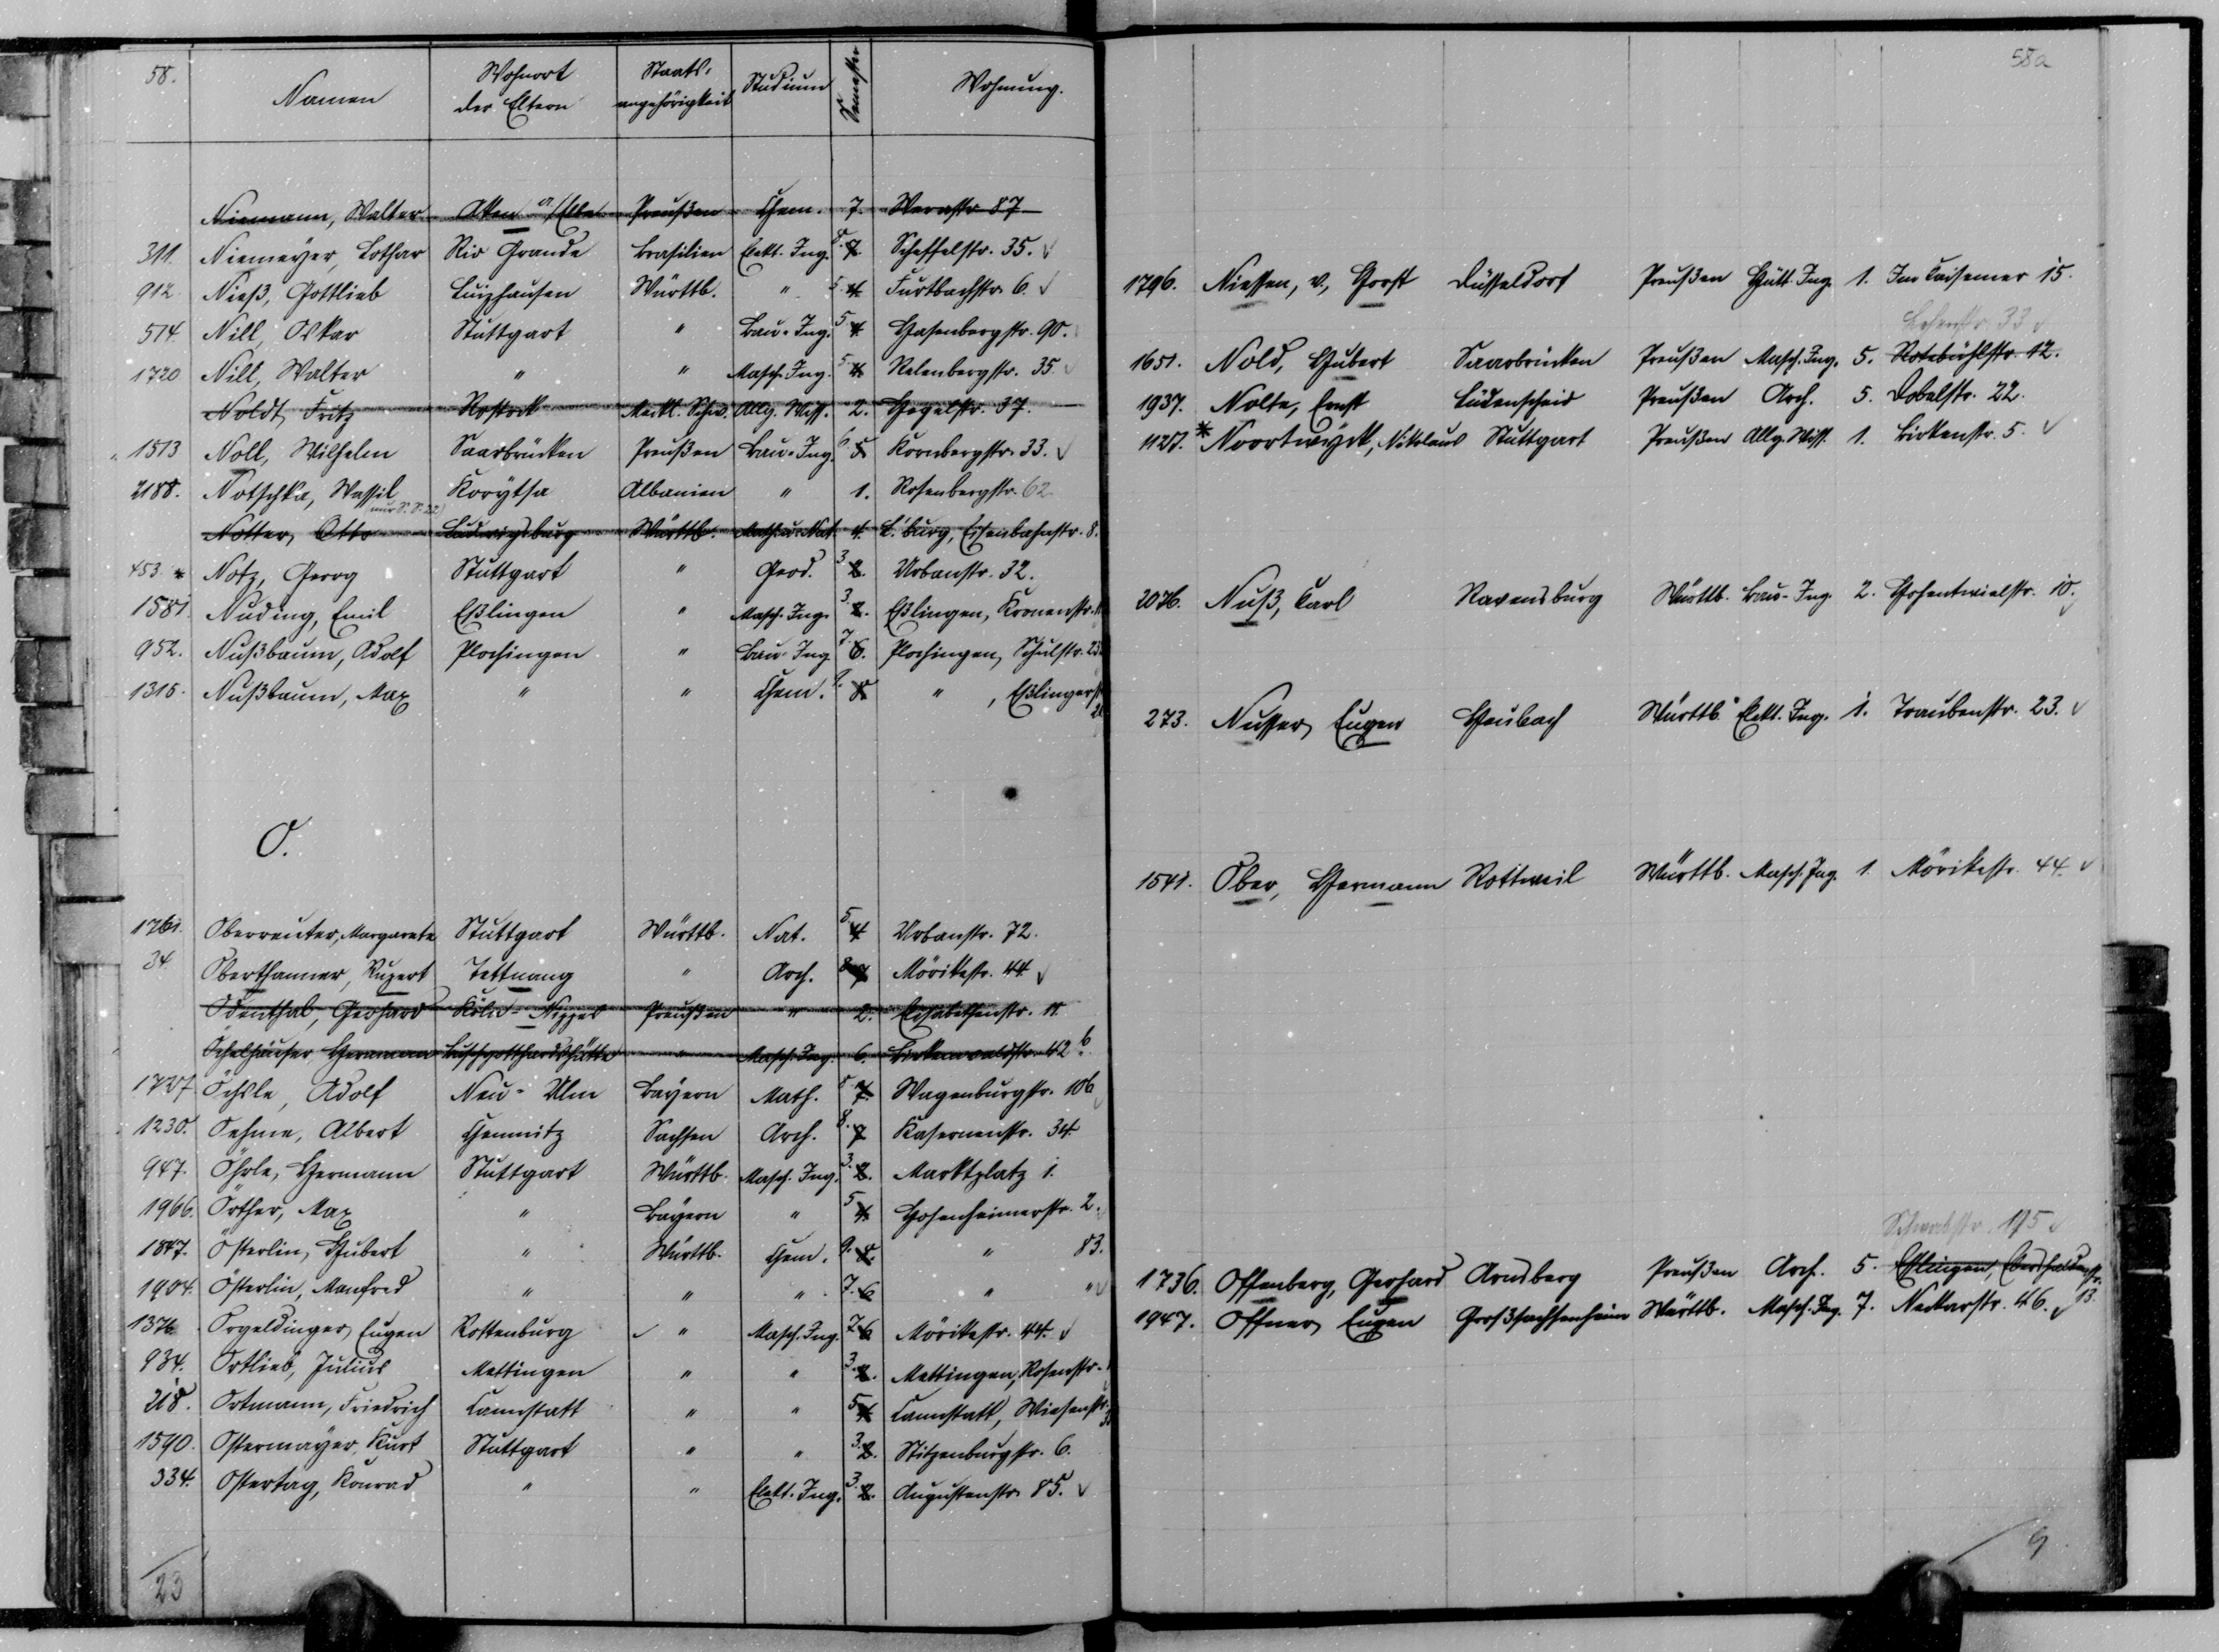 58.
Namen Wohnort der Eltern Staats-angehörigkeit Studium Semester Wohnung.
Niemann, Walter Aken a/Elbe Preußen Chem. 7. Werastr. 87
311. Niemeyer, Lothar Rio Grande Brasilien Elekt. Ing. 8. 7. Scheffelstr. 35. √
912. Nieß, Gottlieb Luizhausen Württb. " 5. 4. Furtbachstr. 6. √
514. Nill, Oskar Stuttgart " Bau-Ing. 5 4. Hasenbergstr. 90.
1720 Nill, Walter " " Masch. Ing. 5 4. Relenbergstr. 35. √
Noldt, Fritz Rostock Meckl. Schw. Allg. Wiss. 2. Hegelstr. 37.
1513 Noll, Wilhelm Saarbrücken Preußen Bau-Ing. 6. 5 Kornbergstr. 33. √
2188. Notschka, Wassil Korytsa Albanien " 1. Rosenbergstr. 62
(nur S. S. 22)
Notter, Otto Ludwigsburg Württb. Math. u. Nat. 4. L'burg, Eisenbahnstr. 8.
453. * Notz, Georg Stuttgart " Geod. 3. 2. Urbanstr. 32.
1581. Nuding, Emil Eßlingen " Masch. Ing. 3. 2. Eßlingen, Kronenstr.
952. Nußbaum, Adolf Plochingen " Bau-Ing 7. 6. Plochingen, Schulstr. 23
1315. Nußbaum, Max " " Chem. 9. 8 " , Eßlingerstr.
O.
1761. Oberreuter, Margarete Stuttgart Württb. Nat. 5 4 Urbanstr. 72.
34. Oberthanner, Rupert Tettnang " Arch. 8 7 Mörikestr. 44 √
Odenthal, Gerhard Köln-Nippes Preußen " 2. Elisabethenstr. 11
Öchelhäuser Hermann Buschgotthardshütte " Masch. Ing. 6. Birkenwaldstr. 42 b.
1727 Öchsle, Adolf Neu-Ulm Bayern Math. 8 7. Wagenburgstr. 106 √
1230. Oehme, Albert Chemnitz Sachsen Arch. 8. 7 Kasernenstr. 34.
947. Öhrle, Hermann Stuttgart Württb. Masch. Ing. 3. 2. Marktplatz 1.
1966. Örther, Max " Bayern " 5 4. Hohenheimerstr. 2. √
1847. Österlin, Hubert " Württb. Chem. 9. 8. " 83.
1904. Österlin, Manfred " " " 7. 6 " " √
1376. Orgeldinger, Eugen Rottenburg √ " Masch. Ing. 7. 6 Mörikestr. 44. √
934. Ortlieb, Julius Mettingen " " 3. 2. Mettingen, Rosenstr.
218. Ortmann, Friedrich Cannstatt " " 5 4 Cannstatt, Wiesenstr.
1590. Ostermayer, Kurt Stuttgart " " 3. 2. Stitzenburgstr. 6.
334. Ostertag, Konrad " " Elekt. Ing. 3. 2. Augustenstr. 85. √
23
58a
1796. Niessen, v., Horst Düsseldorf Preußen Hütt. Ing. 1. Im Kaisemer 15.
Lehenstr. 33 √
1651. Nold, Hubert Saarbrücken Preußen Masch. Ing. 5. Rotebühlstr. 12.
1937. Nolte, Ernst Lüdenscheid Preußen Arch. 5. Dobelstr. 22.
1127. * Noortwyck, Nikolaus Stuttgart Preußen Allg. Wiss. 1. Birkenstr. 5. √
2076. Nuß, Carl Ravensburg Württb. Bau-Ing. 2. Hohentwielstr. 10. √
273. Nusser, Eugen Heubach Württb. Elekt. Ing. 1. Traubenstr. 23. √
1541. Ober, Hermann Rottweil Württb. Masch. Ing. 1. Mörikestr. 44. √
Schwabstr. 195 √
1736. Offenberg, Gerhard Arnsberg Preußen Arch. 5. Eßlingen, Ebershaldenstr. 13.
1947. Offner, Eugen Großsachsenheim Württb. Masch. Ing. 7. Neckarstr. 46. √
9